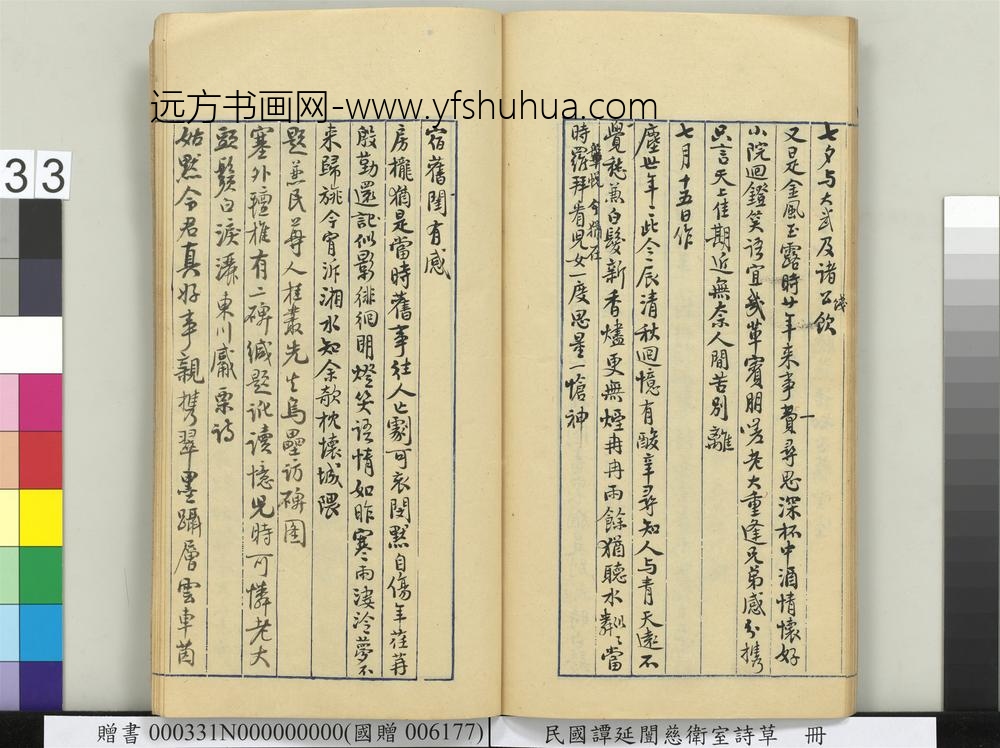 远方书画网-www.yfshuhua.com
七夕与大武及诸公饯飲
又是金風玉露時廿年来事費尋思深杯中酒情懷好
小院迴鐙笑语宜幾輩賓朋嗟老大重逢兄弟感分携
只言天上佳期近無奈人間苦别離
七月十五日作
塵世年年此今辰清秋迴憶有酸辛尋知人与青天遠不
覺愁兼白髮新香燼更無煙冉冉雨餘猶聽水粼粼當
今猶在
時羅拜肯兒女一度思量一愴神
宿舊閨有感
房櫳猶是當時舊事往人亡劇可哀閔默自傷年荏苒
殷勤還記似影徘徊明燈笑语情如昨寒雨淒泠夢不
来歸旐今宵泝湘水知余欹枕壞城隈
題兼民尊人桂叢先生烏壘访碑图
塞外擅榷有二碑緘題訛讀憶兒時可憐老大
頭鬚白淚灑東川處栗詩
姑默令君真好事親携翠墨躡層雲車茵
33
贈書 000331N000000000(國贈 006177)
民國譚延闓慈衛室詩草 冊